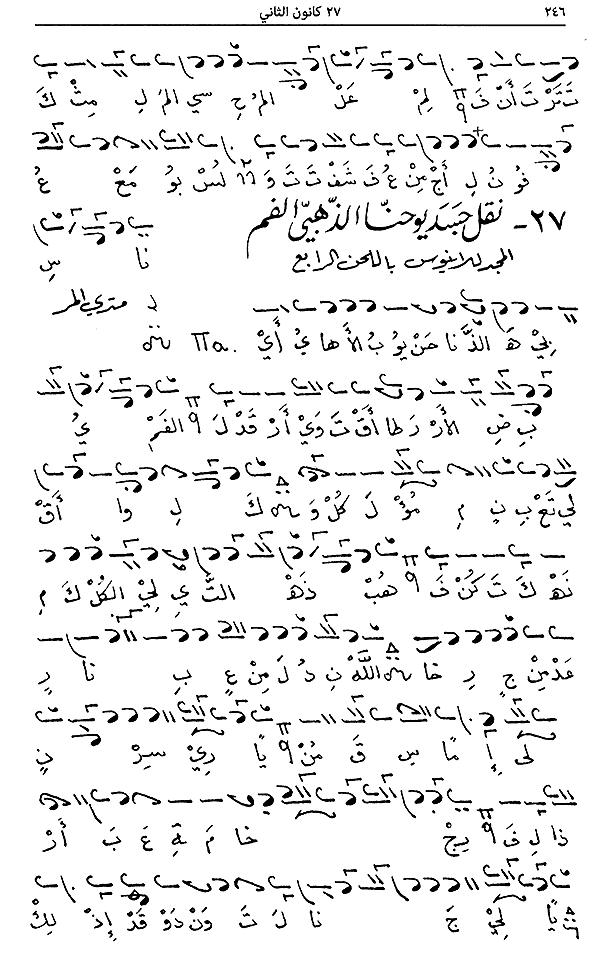 ٢٤٦ ٢٧ كانون الثاني
تَ تَرْ تَ أَنْ فَ لِمْ عَلْ المُ حِ سي المَ لِ مِثْ كَ
فو نُ لِ أَجْ مِنْ عُ فَ شَفْ تَ تَ وَ لِسْ بو مَعْ عُ
٢٧- نقل جسد يوحنا الذهبي الفم
نا سِ
المجد للاينوس باللحن الرابع
بِيْ هَ الذَّ نا حَنْ يو بُ الأَ ها يُ أَيْ
نِ ضِ الأَرْ رَ طا أَقْ تَ وَيْ أَرْ قَدْ لَ الفَمْ يُ
لي تَعْ بِ نِ مِ مُؤْ لَ كُلْ وَ كَ لِ وا أَقْ
نَهْ كَ تَ كُنْ فَ هَبْ ذَهْ التَّ يِ لِيْ الكُلْ كَ مِ
عَدْ مِيْنَ جِ رِ خا اللَّهْ نِ دُ لَ مِنْ عِ بِ نا رِ
لَى إِ مًا سِ قَ مُنْ يًا رِيْ سِرْ نِ
ذا لِ فَ رِجْ خا مَ ةِ عَ بَ أَرْ
يًا لِيْ جَ نا لَ تَ وَنْ دَوْ قَدْ إِذْ لِكْ